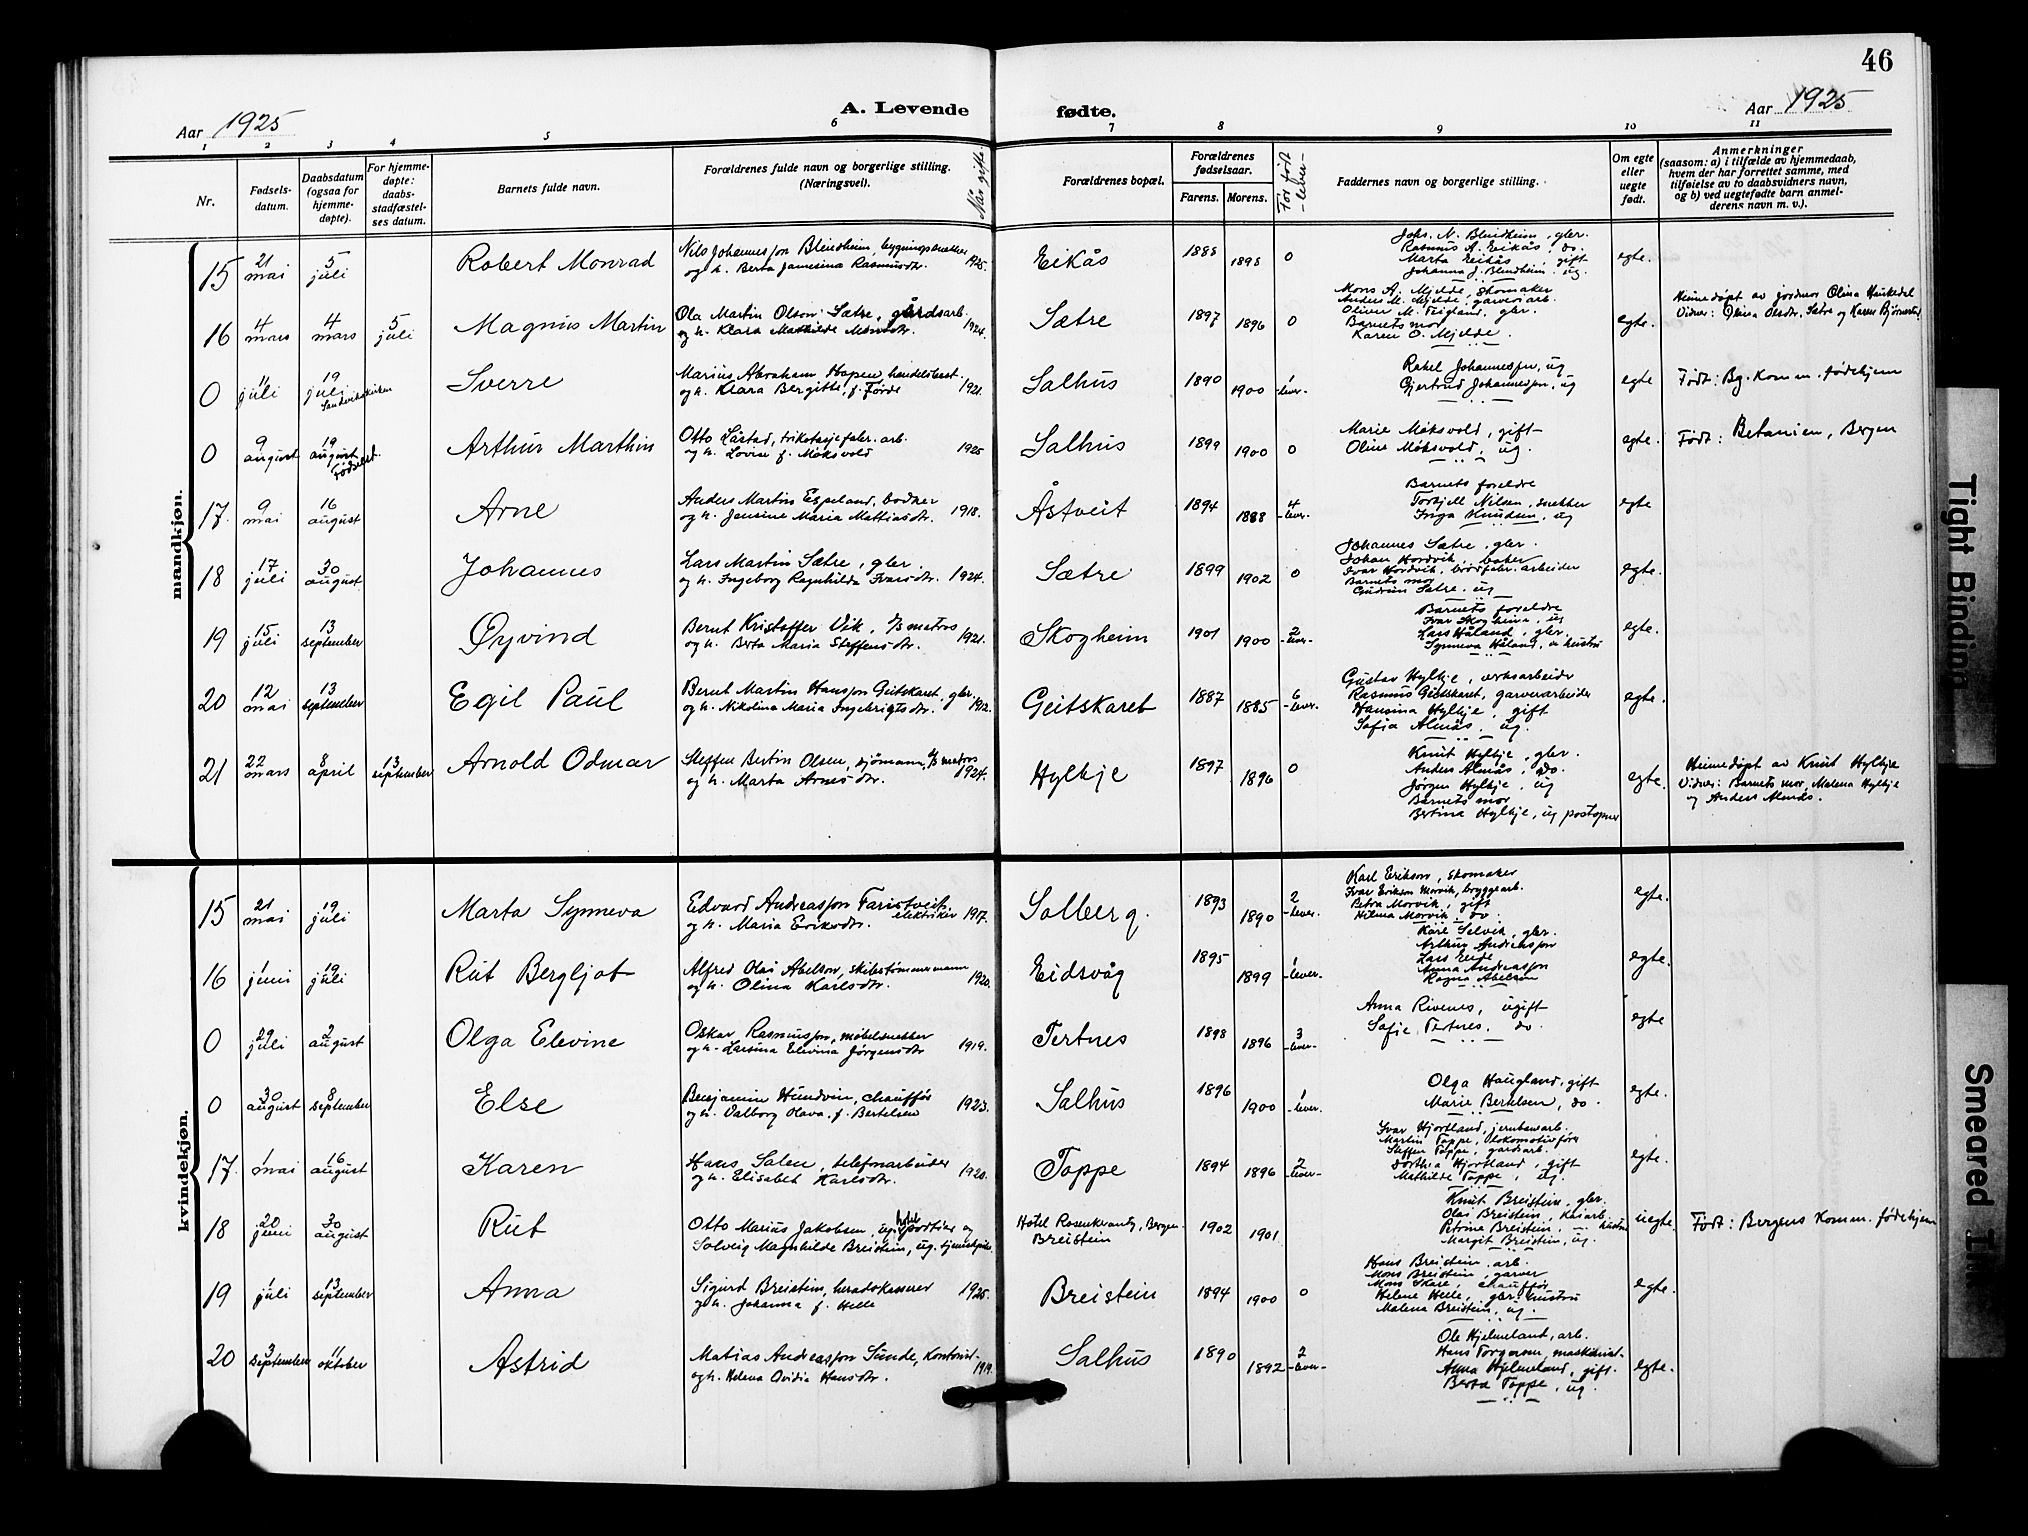 46
A. Levende fødte.
Aar 1925
Aar 1925
1 2 3 4 5 6 7 8 9 10 11
Nr.
Fødsels-
datum.
Daabsdatum
(ogsaa for
hjemme-
døpte).
For hjemme-
døpte:
daabs-
stadfæstel-
ses datum.
Barnets fulde navn.
Forældrenes fulde navn og borgerlige stilling.
(Næringsvei).
Når gifte.
Forældrenes bopæl.
Forældrenes
fødselsaar.
Farens. Morens.
For født
-lever-
Faddernes navn og borgerlige stilling.
Om egte
eller
uegte
født.
Anmerkninger
(saasom: a) i tilfælde av hjemmedaab,
hvem der har forrettet samme, med
tilføielse av to daabsvidners navn,
og b) ved uegtefødte barn anmel-
derens navn m. v.).
mandkjøn.
15 21 mai 5 juli Robert Monrad
Nils Johannesson Blindheim, bygningssnekker
og h. Berta Jamesina Rasmusdtr. 1925.
Eikås 1888 1898 0
Johs. N. Blindheim, gbr.
Rasmus A. Eikås, do.
Marta Eikås, gift
Johanna J. Blindheim, ug.
egte.
16 4 mars 4 mars 5 juli Magnus Martin
Ola Martin Olson Sætre, gårdsarb.
og h. Klara Mathilde Monsdtr. 1924.
Sætre 1897 1896 0
Mons A. Mjelde, skomaker
Anders M. Mjelde, garveriarb.
Oliver M. Teigland, gbr.
Barnets mor
Karen O. Mjelde.
egte.
Heimedøpt av jordmor Olina Haukedal
Vidner: Olina Olsdtr. Sætre og Karen Bjørnestad
0 11 juli 19 juli Sandvikskirken Sverre
Marius Abraham Hopen, handelsbest.
og h. Klara Bergitte, f. Førde 1921.
Salhus 1890 1900 1 -lever-
Rakel Johannessen, ug
Gjertrud Johannessen, ug
egte
Født: Bg. Komm. fødehjem
0 9 august 19 august Fødselsst. Arthur Marthin
Otto Låstad, trikotasjefabr. arb.
og h. Lovise f. Møksvold 1925
Salhus 1899 1900 0
Marie Møksvold, gift
Oline Møksvold, ug.
egte.
Født: Betanien, Bergen
17. 9 mai 16 august Arne
Anders Martin Espeland, bødker
og h. Jensine Maria Mattiasdtr. 1918.
Åstveit 1894 1888 4 -lever.
Barnets foreldre
Torkjell Nilsen, snekker
Inga Knudsen, ug
egte
18 17 juli 30 august Johannes
Lars Martin Sætre, gbr.
og h. Ingeborg Ragnhilda Ivarsdtr. 1924.
Sætre 1899 1902 0
Johannes Sætre, gbr.
Johan Hordvik, baker
Ivar Hordvik, brødfabr. arbeider
Barnets mor
Gudrun Sætre, ug
egte.
19 15 juli 13 september Øyvind
Bernt Kristoffer Vik, matros
og h. Berta Maria Steffensdtr. 1921.
Skogheim 1901 1900 2 -lever-
Barnets foreldre
Ivar Skogheim, ug
Lars Håland, gbr.
Synneva Håland, hustru
egte.
20 12 mai 13 september Egil Paul
Bernt Martin Hansson Geitskaret, gbr.
og h. Nikolina Maria Ingebrigtsdtr. 1912.
Geitskaret 1887 1885 6 -lever.
Gustav Hylkje, verksarbeider
Rasmus Geitskaret, garverarbeider
Hansina Hylkje, gift
Sofia Almås, ug.
egte.
21 22 mars 8 april 13 september Arnold Odmar
Steffen Bertin Olsen, sjømann, matros
og h. Marta Arnesdtr. 1924.
Hylkje 1897 1896 0
Knut Hylkje, gbr.
Anders Almås, do.
Jørgen Hylkje, ug
Barnets mor
Bertina Hylkje, ug postopner
egte.
Heimedøpt av Knut Hylkje
Vidner: Barnets mor, Malena Hylkje
og Anders Almås.
kvindekjøn.
15 21 mai 19 juli Marta Synneva
Edvard Andreasson Faristveit, elektriker
og h. Maria Eriksdtr. 1917.
Solberg. 1893 1890 2 -lever.
Karl Erikson, skomaker
Ivar Erikson Morvik, bryggearb.
Petra Morvik, gift
Hilma Morvik, do.
egte.
16 1 juni 19 juli Rut Bergljot
Alfred Olai Abelson, skibstømmermann
og h. Olina Karlsdtr. 1920.
Eidsvåg 1895 1899 1 -lever.
Kåre Selvik, gbr.
Arthur Andreasson
Lars Eide
Anna Andreasson
Ragna Abelson
egte.
0 29 juli 2 august Olga Elevine
Oskar Rasmusson, møbelsnekker
og h. Larsina Elevina Jørgensdtr 1919.
Tertnes 1898 1896 3 -lever-
Anna Rivenes, ugift
Sofie Tertnes, do.
egte
0 30 august 8 september Else
Benjamin Hundvin, chauffør
og h. Valborg Olava, f. Bertelsen 1923.
Salhus 1896 1900 1 -lever.
Olga Haugland, gift
Marie Bertelsen, do.
egte.
17. 1 mai 16 august Karen
Hans Salen, telefonarbeider
og h. Elisabet Karlsdtr. 1920.
Toppe 1894 1896 2 -lever-
Ivar Hjortland, jernbanearb.
Martin Toppe, lokomotivfører
Steffen Toppe, gardsarb.
Dorthea Hjortland, gift
Mathilde Toppe, ug.
egte.
18 20 juni 30 august Rut
Otto Marius Jakobsen, ug. hotel portier og
Solveig Magnhilde Breistein, ug. tjenestpike
Hotel Rosenkrantz, Bergen
Breistein 1902 1901
Knut Breistein, gbr.
Olai Breistein, kaiarb.
Petrine Breistein, hustru
Margit Breistein, ug.
uegte.
Født: Bergens Komm. fødehjem
19 1 juli 13 september Anna
Sigurd Breistein, heradskasserer
og h. Johanna f. Helle 1925.
Breistein 1894 1900 0
Hans Breistein, arb.
Mons Breistein, garver
Mons Skare, chauffør
Helene Helle, gbr. hustru
Malena Breistein, ug.
egte.
20 3 september 11 oktober Astrid
Matias Andreasson Sunde, kontorist
og h. Helena Ovidia Hansdtr. 1919.
Salhus 1890 1892 2 -lever-
Ole Hjelmeland, arb.
Hans Torgersen, maskinist
Anna Hjelmeland, gift.
Berta Toppe, ug.
egte.
Tight Binding
Smeared